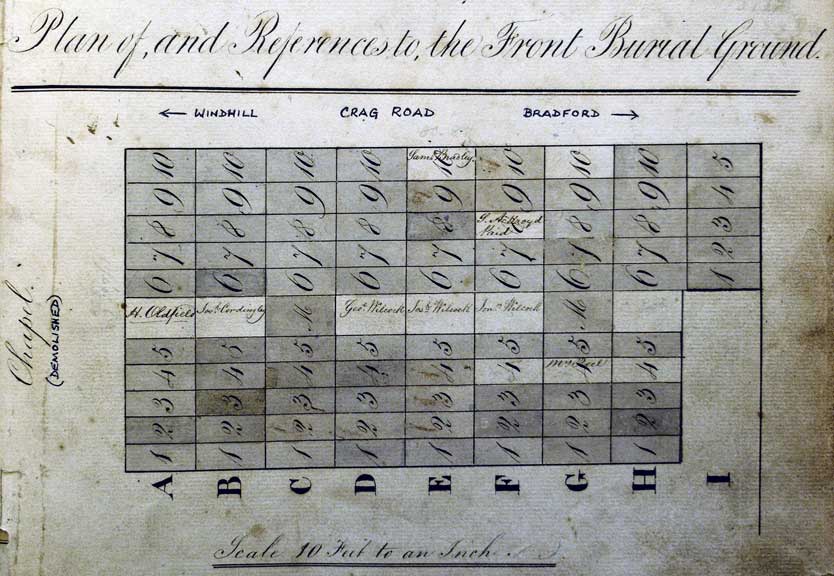 Plan of, and References to, the Front Burial Ground.
← WINDHILL CRAG ROAD BRADFORD →
10 10 10 10 Saml. Bradley 10 10 10 10 5
9 9 9 9 9 9 9 9 4
8 8 8 8 8 Paid 8 8 3
7 7 7 7 7 7 7 7 2
6 6 6 6 6 6 6 6 1
H. Oldfield Josh. Cordingley M Geo. Wilcock Josh. Wilcock Jona. Wilcock M
5 5 5 5 5 5 5 5
4 4 4 4 4 4 4 4
3 3 3 3 3 3 3 3
2 2 2 2 2 2 2 2
1 1 1 1 1 1 1 1
A B C D E F G H I
Chapel.
(DEMOLISHED)
Scale 10 Feet to an Inch